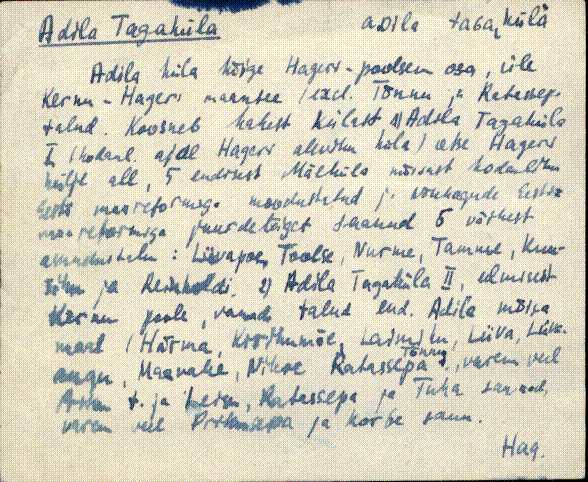 Adila Tagaküla adila taga,külä
Adila küla kõige Hageri-poolsem osa, üle
Kernu - Hageri maantee (excl. Tõnnu ja Ratassepa
talud. Koosneb kahest külast 1) Adila Tagaküla
I, (kodanl. ajal Hageri aleviku küla) otse Hageri
külje all, 5 endisest mõisast kodanliku
Eesti maareformiga moodustatud ja nõukogude Eesti
maareformiga juurdelõiget saanud 6 väikest
asundustalu: Liivapere, Toolse, Nurme, Tamme,
ja Reinholdi. 2) Adila Tagaküla II, eelmisest
Kernu poole, vanad talud end. Adila mõisa
maal (Härma, Laimetsu, Liiva,
Maanake, Nikse Ratassepa Tõnnu, varem veel
t. ja Ratassepa ja Tuha saunad,
varem veel Prillsepa ja Kõrbe saun.
Hag.